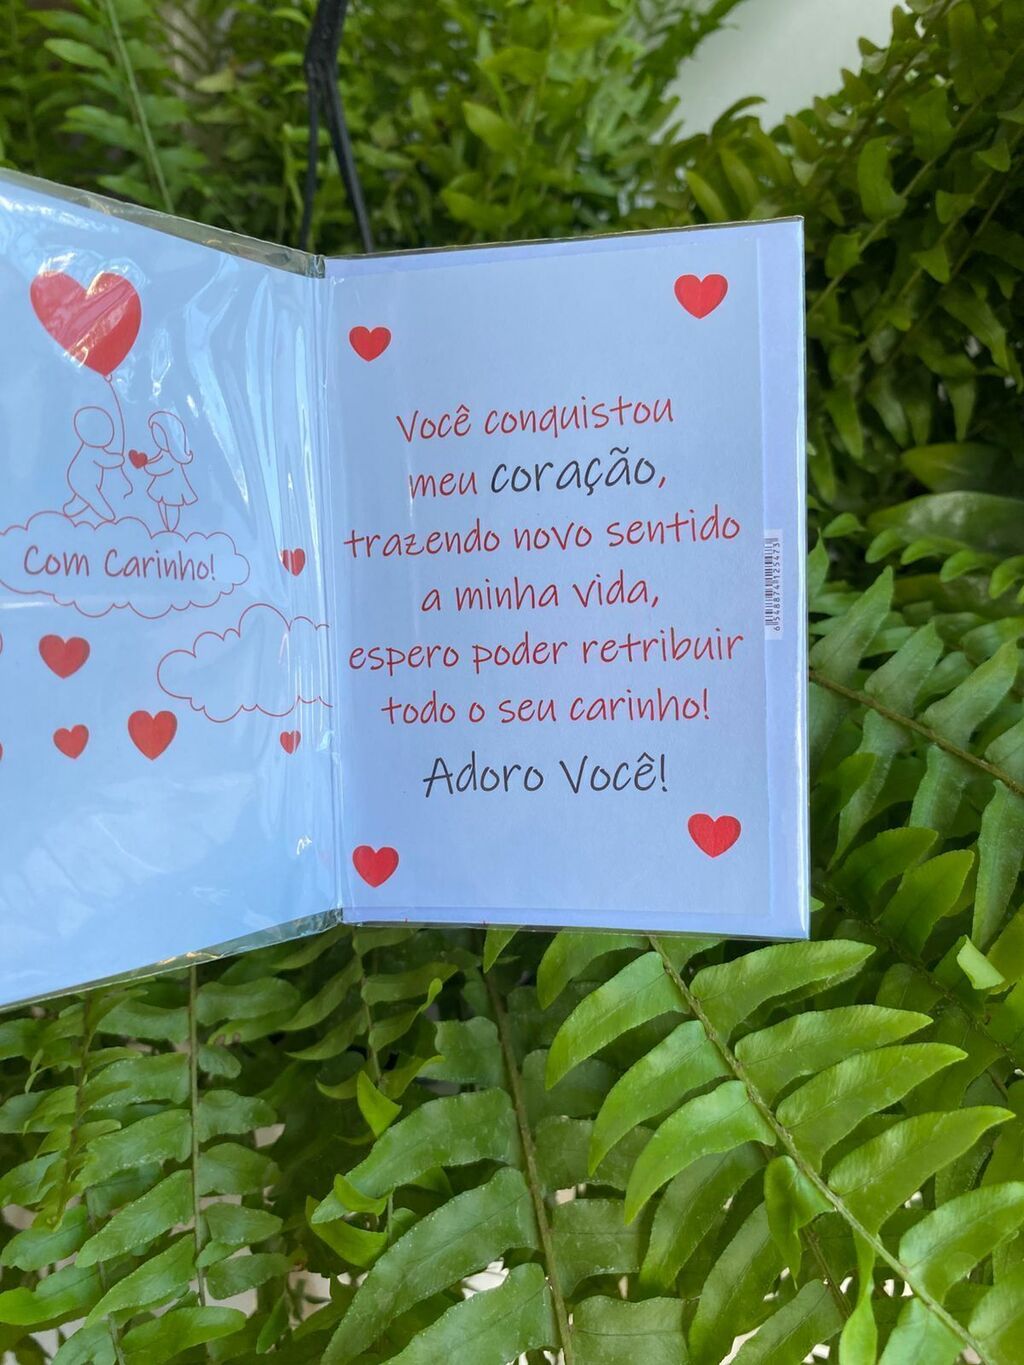 Com Carinho!
Você conquistou
meu coração,
trazendo novo sentido
a minha vida,
espero poder retribuir
todo o seu carinho!
Adoro Você!
6548874125473